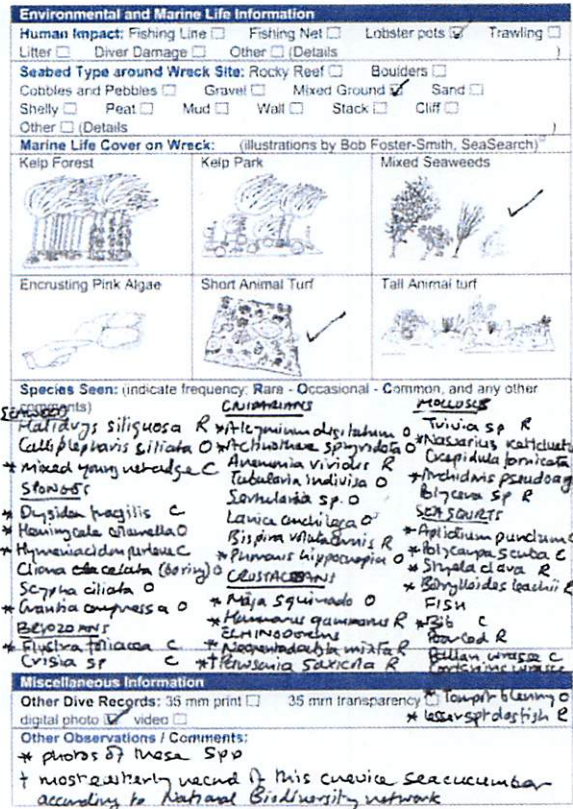 Environmental and Marine Life Information
Human Impact: Fishing Line ☐ Fishing Net ☐ Lobster pots ☑ Trawling ☐
Litter ☐ Diver Damage ☐ Other ☐ (Details )
Seabed Type around Wreck Site: Rocky Reef ☐ Boulders ☐
Cobbles and Pebbles ☐ Gravel ☐ Mixed Ground ☑ Sand ☐
Shelly ☐ Peat ☐ Mud ☐ Wall ☐ Stack ☐ Cliff ☐
Other ☐ (Details )
Marine Life Cover on Wreck: (illustrations by Bob Foster-Smith, SeaSearch)
Kelp Forest Kelp Park Mixed Seaweeds
Encrusting Pink Algae Short Animal Turf Tall Animal turf
Species Seen: (indicate frequency: Rare - Occasional - Common, and any other
comments)
SEAWEED
Halidrys siliquosa R
Calliblepharis ciliata O
* mixed young red algae C
SPONGES
* Dysidea fragilis C
* Hemimycale columella O
* Hymeniacidon perleve C
Cliona celata (boring) O
Scypha ciliata O
* Grantia compressa O
BRYOZOANS
* Flustra foliacea C
Crisia sp C
CNIDARIANS
* Alcyonium digitatum O
* Actinothoe sphyrodeta O
Anemonia viridis R
Tubularia indivisa O
Sertularia sp. O
Lanice conchilega O
Bispira volutacornis R
* Phoronis hippocrepia O
CRUSTACEANS
* Maja squinado O
* Hommarus gammarus R
ECHINODERMS
* Neopentadactyla mixta R
*† Pawsonia saxicola R
MOLLUSCS
Trivia sp R
* Nassarius
Crepidula fornicata
* Archidoris pseudoarg
Polycera sp R
SEA SQUIRTS
* Aplidium punctum C
* Polycarpa scuba C
* Styela clava R
* Botrylloides leachii R
FISH
* Bib C
Poor cod R
Ballan wrasse C
wrasse
* Tompot blenny O
* lesser spt dogfish R
Miscellaneous Information
Other Dive Records: 35 mm print ☐ 35 mm transparency ☐
digital photo ☑ video ☐
Other Observations / Comments:
* photos of these spp
† most easterly record of this crevice sea cucumber
according to National Biodiversity network